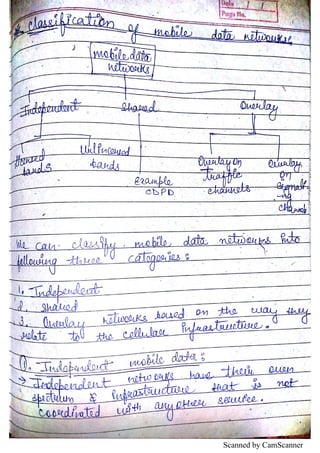 Date
Page No.
* classification of mobile data networks:
mobile data
networks
Independent shared Overlay
licensed
bands
Unlicensed
bands
Example
CDPD
Overlay on
Traffic
channels
Overlay
on
signall-
-ing
channels
We can classify mobile data networks into
following three categories:
1. Independent
2. Shared
3. Overlay networks based on the way they
relate to the cellular Infrastructure.
1. Independent mobile data:
→ Independent networks have their own
spectrum & Infrastructure that is not
coordinated with any other service.
Scanned by CamScanner